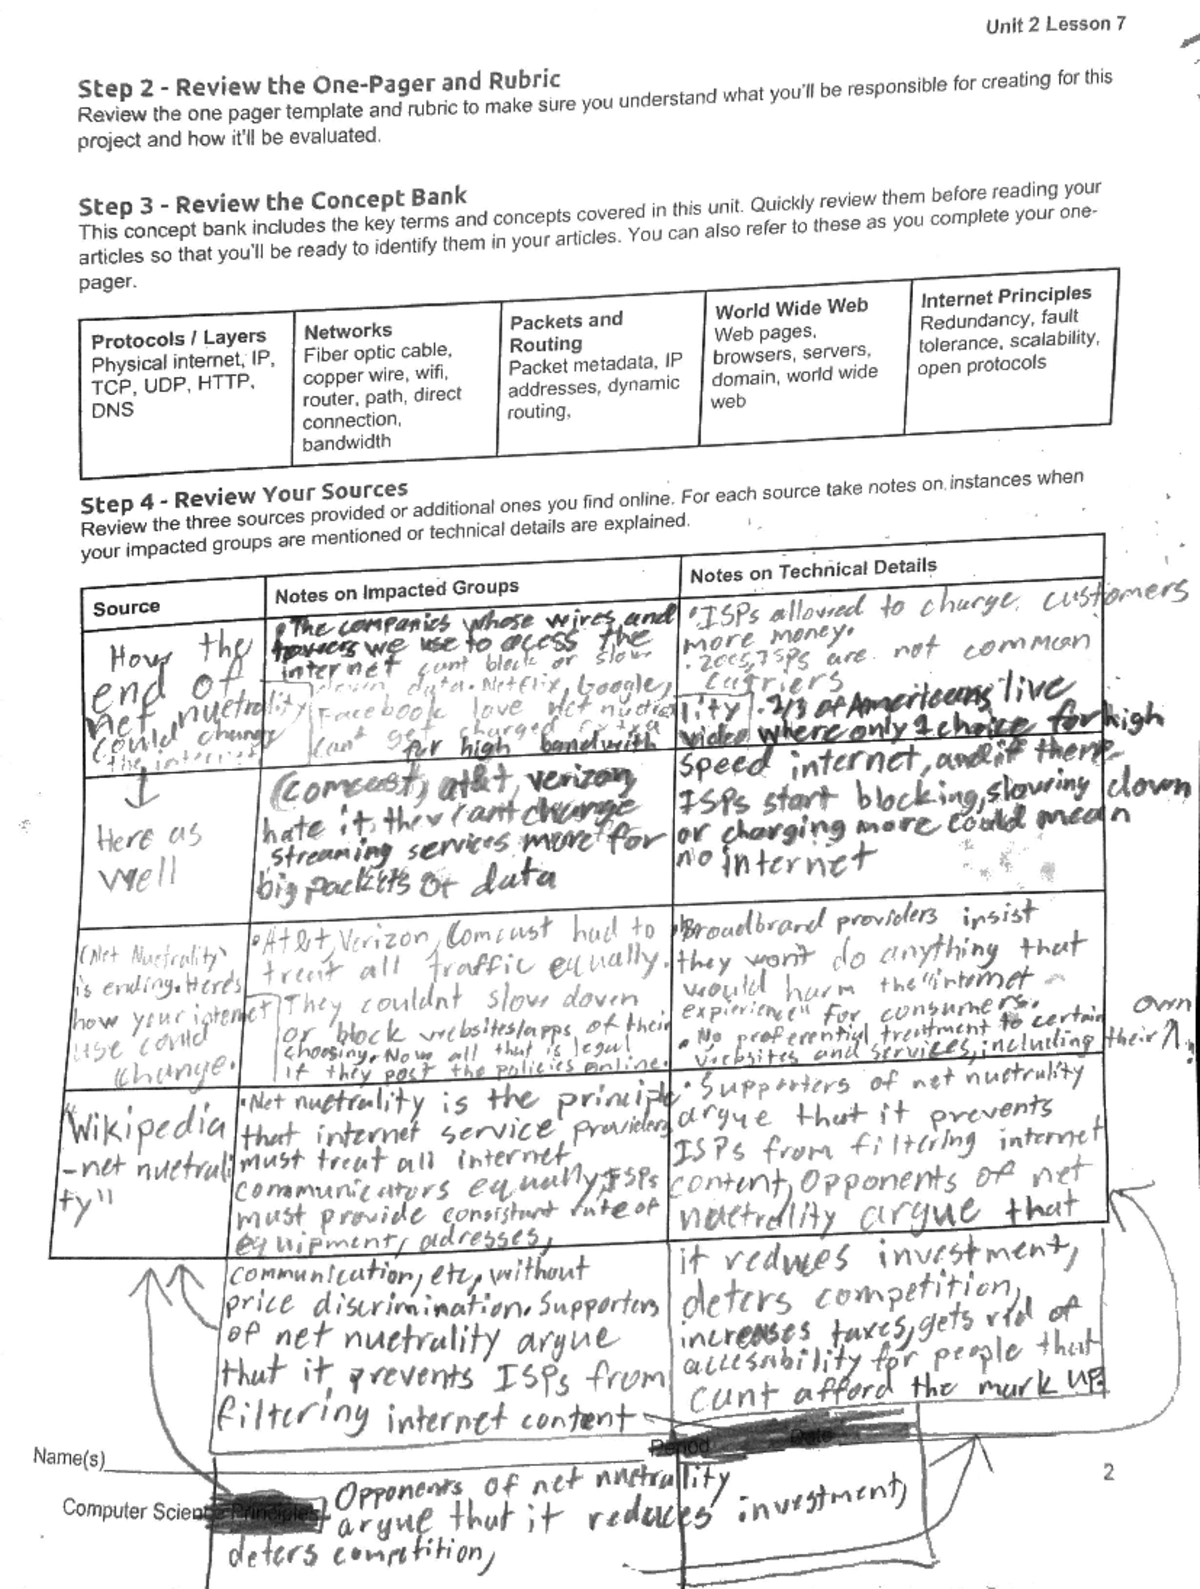 Unit 2 Lesson 7
Step 2 - Review the One-Pager and Rubric
Review the one pager template and rubric to make sure you understand what you'll be responsible for creating for this
project and how it'll be evaluated.
Step 3 - Review the Concept Bank
This concept bank includes the key terms and concepts covered in this unit. Quickly review them before reading your
articles so that you'll be ready to identify them in your articles. You can also refer to these as you complete your one-
pager.
Protocols / Layers
Physical internet, IP,
TCP, UDP, HTTP,
DNS
Networks
Fiber optic cable,
copper wire, wifi,
router, path, direct
connection,
bandwidth
Packets and
Routing
Packet metadata, IP
addresses, dynamic
routing,
World Wide Web
Web pages,
browsers, servers,
domain, world wide
web
Internet Principles
Redundancy, fault
tolerance, scalability,
open protocols
Step 4 - Review Your Sources
Review the three sources provided or additional ones you find online. For each source take notes on instances when
your impacted groups are mentioned or technical details are explained.
Source
Notes on Impacted Groups
Notes on Technical Details
How the
end of
net nuetrality
could change
the internet
• The companies whose wires and
towers we use to acess the
internet cant block or slow
down data. Netflix, Google,
Facebook love net nuetrality.
Cant get charged extra
for high bandwith
• ISPs allowed to charge customers
more money.
• 2005, ISPs are not common
carriers
• 2/3 of Americans live
where only 1 choice for high
Here as
well
Comcast, at&t, verizon
hate it, they cant charge
streaming services more for
big packets of data
speed internet, and if there
ISPs start blocking, slowing down
or charging more could mean
no internet
(Net Nuetrality)
is ending. Here's
how your internet
use could
change.
• At&t, Verizon, Comcast had to
treat all traffic equally.
They couldnt slow down
or block websites/apps of their
choosing. Now all that is legal
if they post the policies online.
• Broadbrand providers insist
they won't do anything that
would harm the "internet
expierience" for consumers.
• No preferential treatment to certain
websites and services, including their own.
"Wikipedia
-net nuetrali
ty"
• Net nuetrality is the principle
that internet service providers
must treat all internet
communicators equally, ISPs
must provide consistant rate of
equipment, adresses,
communication, etc, without
price discrimination. Supporters
of net nuetrality argyue
that it prevents ISPs from
filtering internet content
• Supporters of net nuetrality
argyue that it prevents
ISPs from filtering internet
content, Opponents of net
nuetrality argyue that
it reduces investment,
deters competition,
increases taxes, gets rid of
accesability for people that
cant afford the mark up.
Name(s)
Period
Date
2
Computer Science Principles
Opponents of net nuetrality
argyue that it reduces investment,
deters competition,